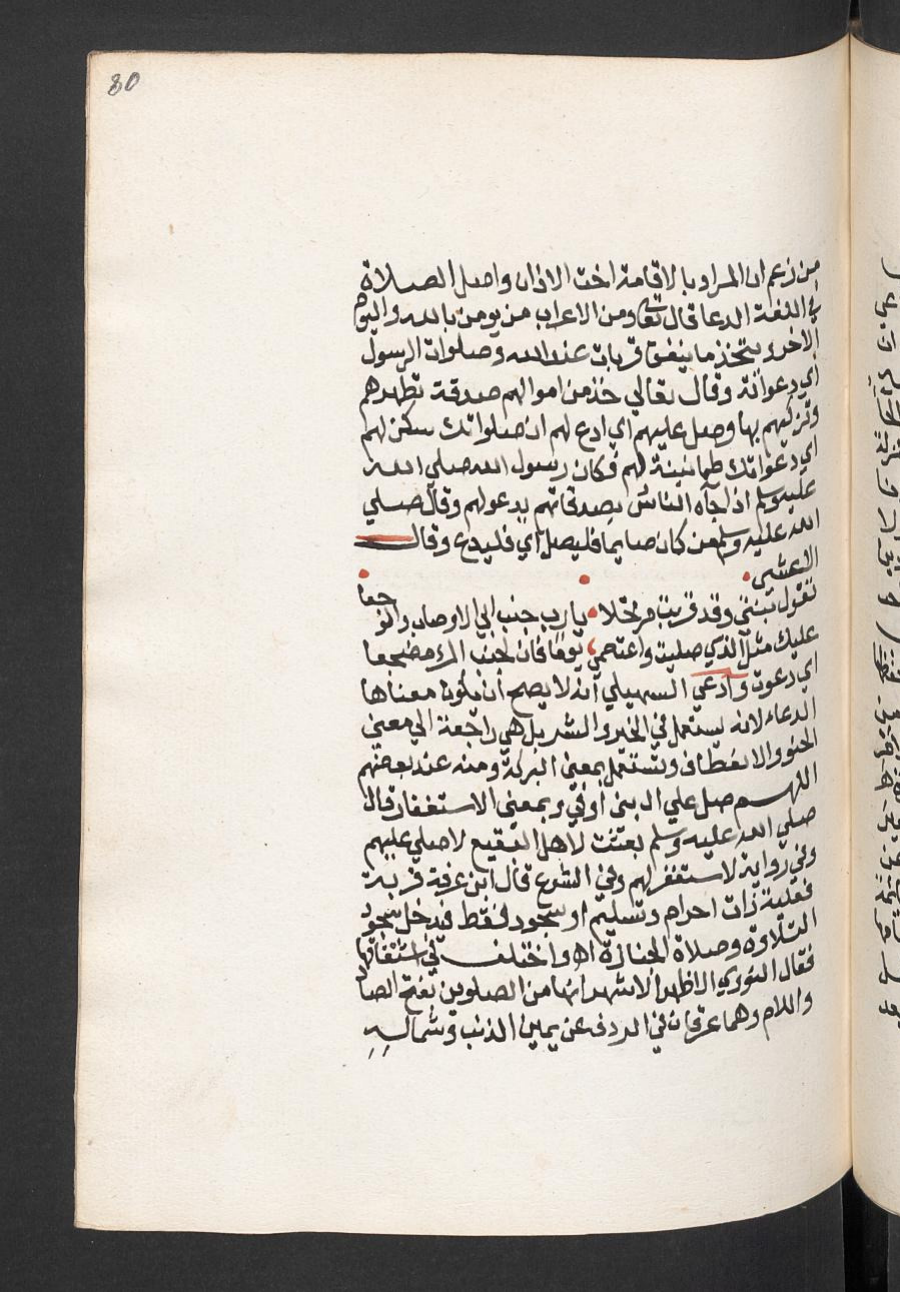 80
من زعم ان المراد بالاقامة اخت الاذان واصل الصلاة
في اللغة الدعا قال تعا ومن الاعراب من يومن بالله واليوم
الاخر ويتخذ ما ينفق قربات عند الله وصلوات الرسول
اي دعواته وقال تعالي خذ من اموالهم صدقة تطهرهم
وتزكيهم بها وصل عليهم اي ادع لهم ان صلواتك سكن لهم
اي دعواتك طمانينة لهم فكان رسول الله صلي الله
عليه وسلم اذا جآه الناس بصدقاتهم يدعو لهم وقال صلي
الله عليه وسلم من كان صايما فليصل اي فليدع وقال
الاعشى
تقول بنتي وقد قربت مرتحلا يا رب جنب ابي الاوصاب والوجعا
عليك مثل الذي صليت واغتمضي يوما فان لجنب المرء مضجعا
اي دعوت وادعي السهيلي انه لا يصح ان يكون معناها
الدعاء لانه يستعمل في الخير والشر بل هي راجعة الي معني
الحنو والانعطاف وتستعمل بمعني البركة ومنه عند بعضهم
اللهم صل علي ال بني اوفي وبمعني الاستغفار قال
صلي الله عليه وسلم بعثت لاهل البقيع لاصلي عليهم
وفي رواية لاستغفر لهم وفي الشرع قال ابن عرفة قربة
فعلية ذات احرام وتسليم او سجود فقط فدخل سجود
التلاوة وصلاة الجنازة اه واختلف في اشتقاقها
فقال النووي الاظهر الاشهر انها من الصلوين بفتح الصاد
واللام وهما عرقان في الردف عن يمين الذنب وشماله